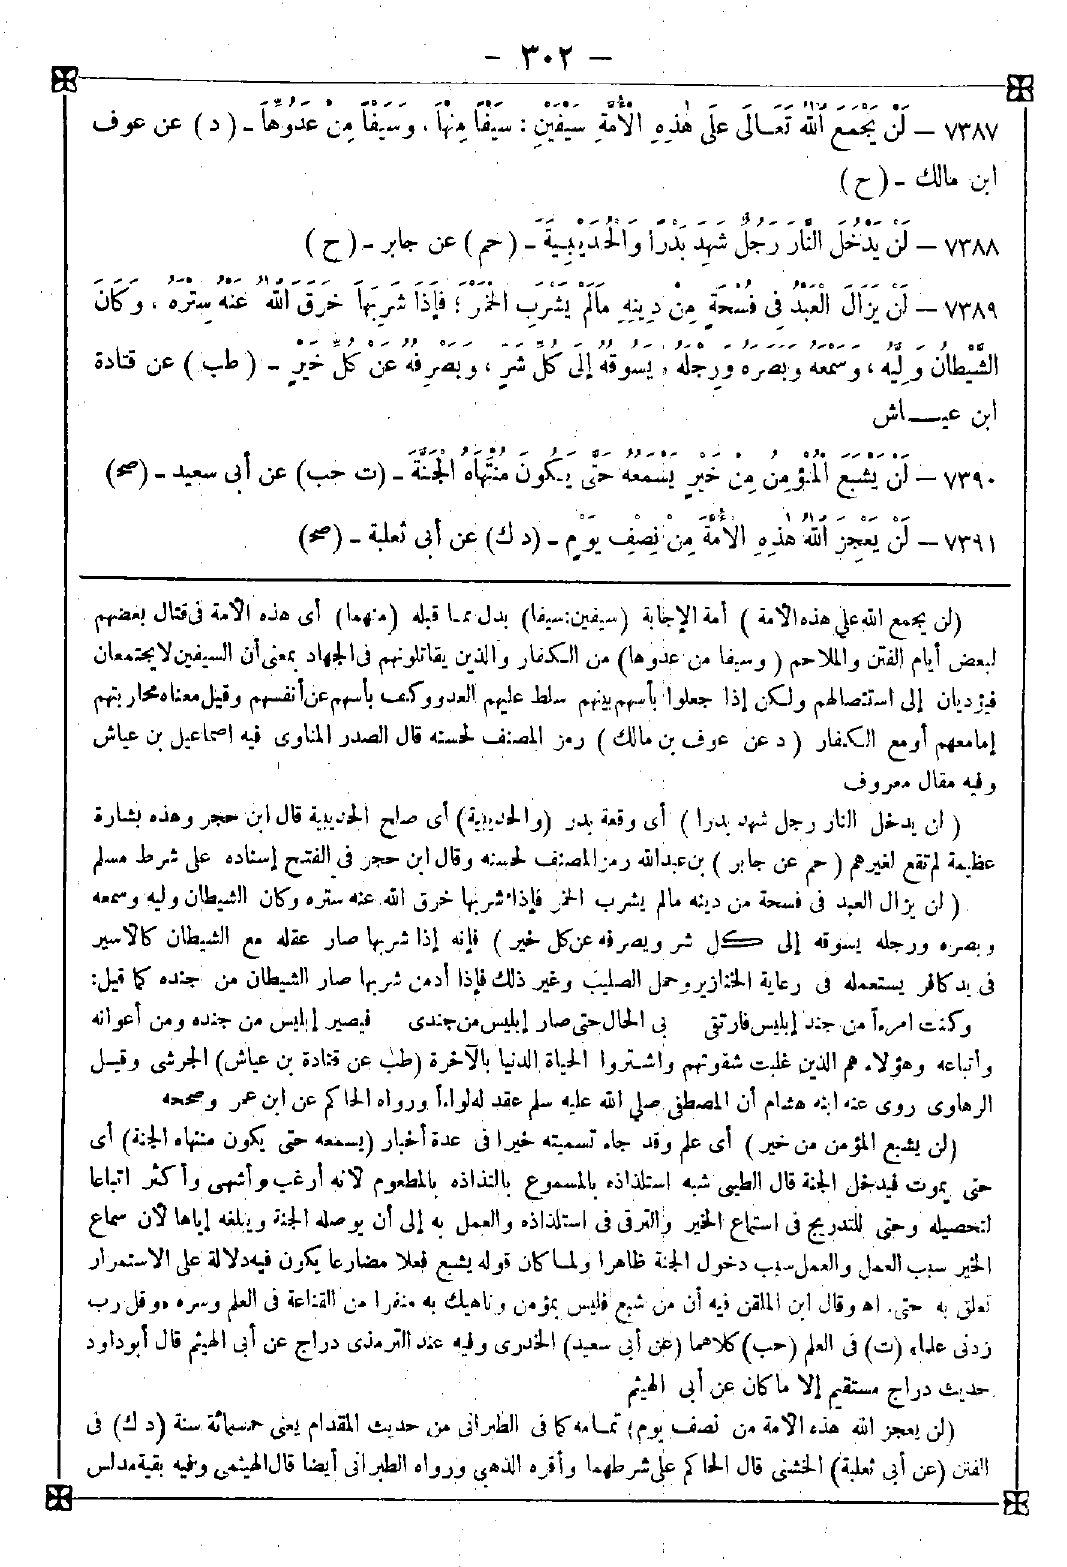 – ٣٠٢ –
٧٣٨٧ – لَنْ يَجْمَعَ اللّٰهُ تَعَالَى عَلَى هٰذِهِ الْأُمَّةِ سَيْفَيْنِ : سَيْفًا مِنْهَا ، وَسَيْفًا مِنْ عَدُوِّهَا – ( د ) عن عوف
ابن مالك – ( ح )
٧٣٨٨ – لَنْ يَدْخُلَ النَّارَ رَجُلٌ شَهِدَ بَدْرًا وَالْحُدَيْبِيَةَ – ( حم ) عن جابر – ( ح )
٧٣٨٩ – لَنْ يَزَالَ الْعَبْدُ فِى فُسْحَةٍ مِنْ دِينِهِ مَالَمْ يَشْرَبِ الْخَمْرَ ؛ فَإِذَا شَرِبَهَا خَرَقَ اللّٰهُ عَنْهُ سِتْرَهُ ، وَكَانَ
الشَّيْطَانُ وَلِيَّهُ ، وَسَمْعَهُ وَبَصَرَهُ وَرِجْلَهُ ، يَسُوقُهُ إِلَى كُلِّ شَرٍّ ، وَيَصْرِفُهُ عَنْ كُلِّ خَيْرٍ – ( طب ) عن قتادة
ابن عياش
٧٣٩٠ – لَنْ يَشْبَعَ الْمُؤْمِنُ مِنْ خَيْرٍ يَسْمَعُهُ حَتَّى يَكُونَ مُنْتَهَاهُ الْجَنَّةَ – (ت حب) عن أبى سعيد – (صح)
٧٣٩١ – لَنْ يَعْجِزَ اللّٰهُ هٰذِهِ الْأُمَّةَ مِنْ نِصْفِ يَوْمٍ – (د ك) عن أبى ثعلبة – (صح)
(لن يجمع الله على هذه الأمة ) أمة الإجابة (سيفين:سيفا) بدل مما قبله (منهما) أى هذه الأمة فى قتال بعضهم
لبعض أيام الفتن والملاحم ( وسيفا من عدوها) من الكفار والذين يقاتلونهم فى الجهاد بمعنى أن السيفين لا يجتمعان
فيؤديان إلى استئصالهم ولكن إذا جعلوا بأسهم بينهم سلط عليهم العدو وكف بأسهم عن أنفسهم وقيل معناه محاربتهم
إما معهم أو مع الكفار ( د عن عوف بن مالك ) رمز المصنف لحسنه قال الصدر المناوى فيه اسماعيل بن عياش
وفيه مقال معروف
( لن يدخل النار رجل شهد بدرا ) أى وقعة بدر (والحديبية) أى صلح الحديبية قال ابن حجر وهذه بشارة
عظيمة لم تقع لغيرهم ( حم عن جابر ) بن عبدالله رمز المصنف لحسنه وقال ابن حجر فى الفتح إسناده على شرط مسلم
( لن يزال العبد فى فسحة من دينه مالم يشرب الخمر فإذا شربها خرق الله عنه ستره وكان الشيطان وليه وسمعه
وبصره ورجله يسوقه إلى كل شر ويصرفه عن كل خير ) فإنه إذا شربها صار عقله مع الشيطان كالأسير
فى يد كافر يستعمله فى رعاية الخنازير وحمل الصليب وغير ذلك فإذا أدمن شربها صار الشيطان من جنده كما قيل:
وكنت امرءاً من جند إبليس فارتقى بى الحال حتى صار إبليس من جندى فيصير إبليس من جنده ومن أعوانه
وأتباعه وهؤلاء هم الذين غلبت شقوتهم واشتروا الحياة الدنيا بالآخرة (طب عن قتادة بن عياش) الجرشى وقيل
الرهاوى روى عنه ابنه هشام أن المصطفى صلى الله عليه سلم عقد له لواءاً ورواه الحاكم عن ابن عمر وصححه
(لن يشبع المؤمن من خير ) أى علم وقد جاء تسميته خيرا فى عدة أخبار (يسمعه حتى يكون منتهاه الجنة) أى
حتى يموت فيدخل الجنة قال الطيبى شبه استلذاذه بالمسموع بالتذاذه بالمطعوم لأنه أرغب وأشهى وأكثر اتباعا
لتحصيله وحتى للتدريج فى استماع الخير والترقى فى استلذاذه والعمل به إلى أن يوصله الجنة ويبلغه إياها لأن سماع
الخير سبب العمل والعمل سبب دخول الجنة ظاهرا ولما كان قوله يشبع فعلا مضارعا يكون فيه دلالة على الاستمرار
تعلق به حتى. اه وقال ابن الملقن فيه أن من شبع فليس بمؤمن وناهيك به منفرا من القناعة فى العلم وسره «وقل رب
زدنى علما» (ت) فى العلم (حب) كلاهما (عن أبى سعيد) الخدرى وفيه عند الترمذى دراج عن أبى الهيثم قال أبو داود
حديث دراج مستقيم إلا ما كان عن أبى الهيثم
(لن يعجز الله هذه الأمة من نصف يوم) تمامه كما فى الطبرانى من حديث المقدام يعنى خمسمائة سنة (د ك) فى
الفتن (عن أبى ثعلبة) الخشنى قال الحاكم على شرطهما وأقره الذهبى ورواه الطبرانى أيضا قال الهيثمى وفيه بقية مدلس